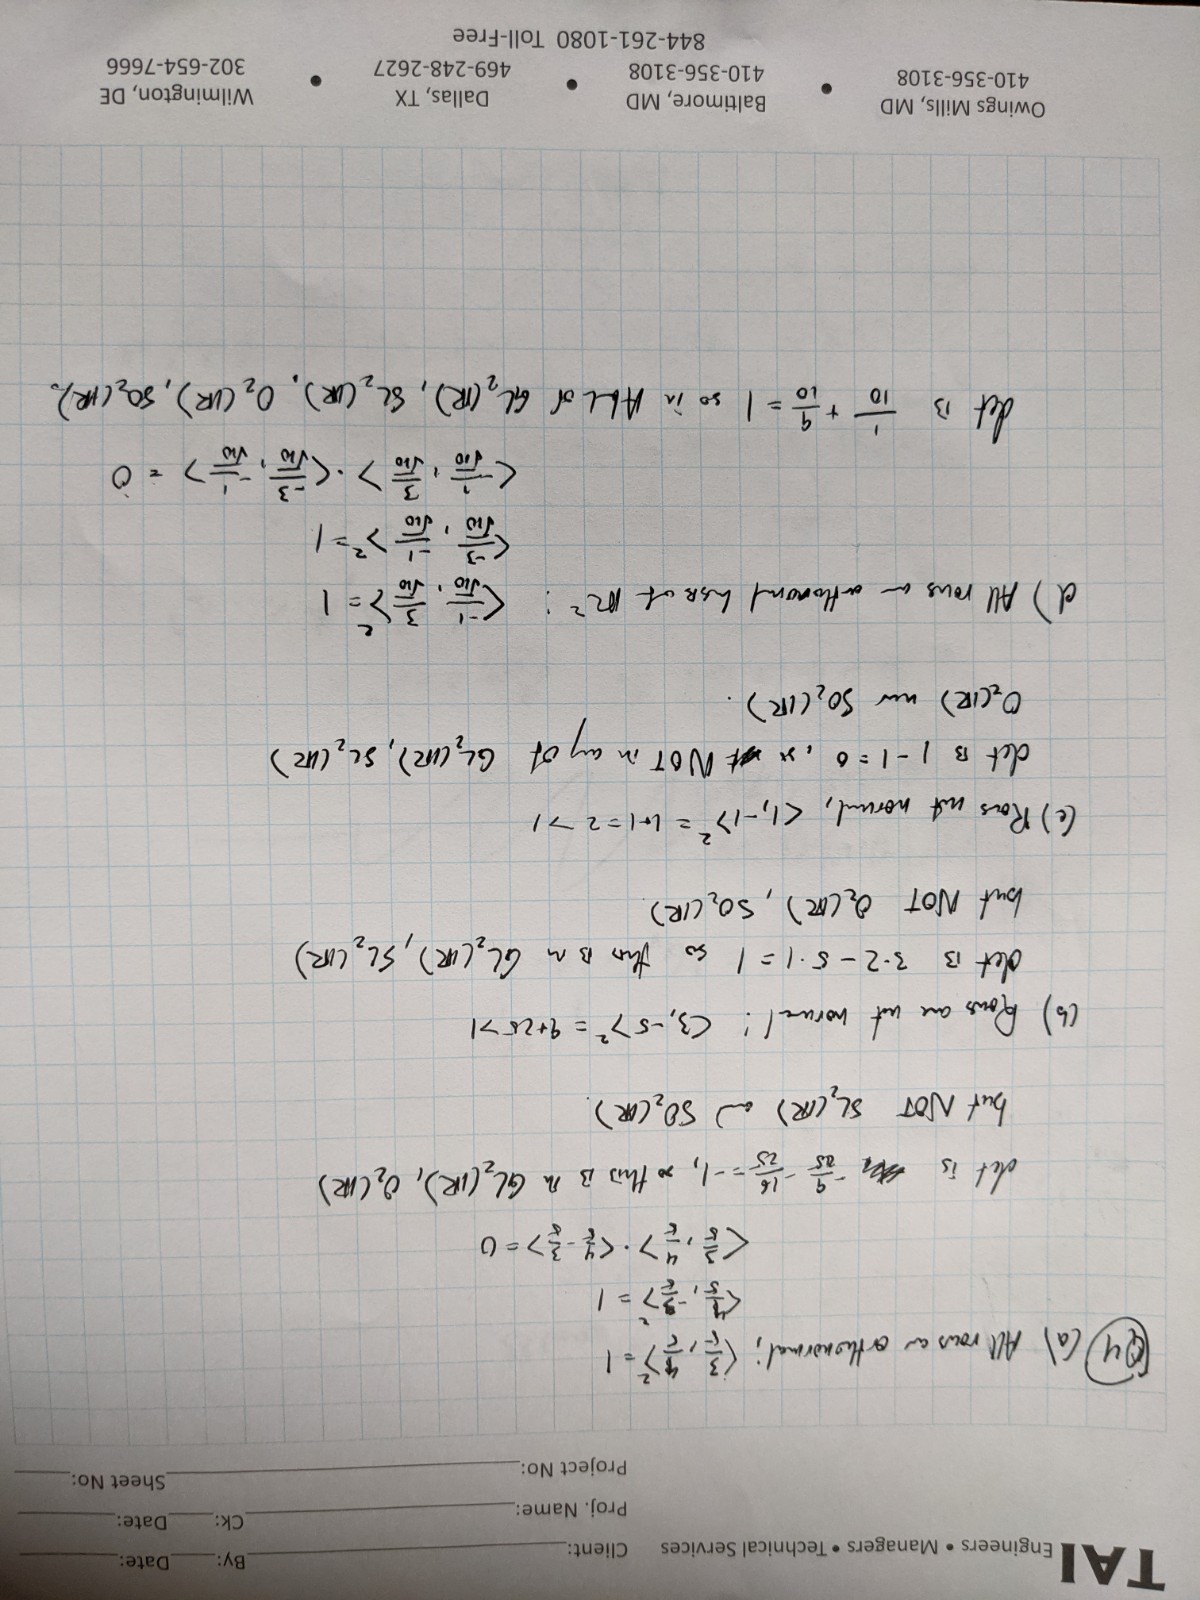 TAI Engineers • Managers • Technical Services
Client: By: Date:
Proj. Name: Ck: Date:
Project No: Sheet No:
Q4 (a) All rows are orthonormal; <3/5, 4/5>² = 1
<4/5, -3/5>² = 1
<3/5, 4/5> · <4/5 -3/5> = 0
det is -9/25 - 16/25 = -1, so this is in GL₂(ℝ), O₂(ℝ)
but NOT SL₂(ℝ) and SO₂(ℝ).
(b) Rows are not normal! <3, -5>² = 9+25>1
det is 3·2 - 5·1 = 1 so this is in GL₂(ℝ), SL₂(ℝ)
but NOT O₂(ℝ), SO₂(ℝ)
(c) Rows not normal, <1, -1>² = 1+1 = 2 >1
det is 1-1=0, so NOT in any of GL₂(ℝ), SL₂(ℝ)
O₂(ℝ) nor SO₂(ℝ).
d) All rows are orthonormal basis of ℝ²: <-1/√10, 3/√10>² = 1
<-3/√10, -1/√10>² = 1
<-1/√10, 3/√10> · <-3/√10, -1/√10> = 0
det is 1/10 + 9/10 = 1 so in ALL of GL₂(ℝ), SL₂(ℝ), O₂(ℝ), SO₂(ℝ).
Owings Mills, MD • Baltimore, MD • Dallas, TX • Wilmington, DE
410-356-3108 410-356-3108 469-248-2627 302-654-7666
844-261-1080 Toll-Free